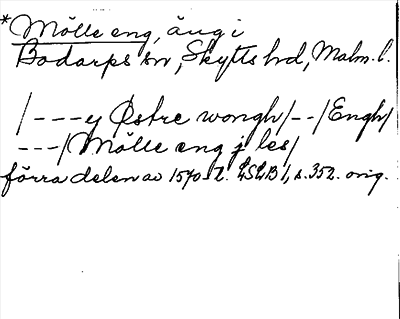 *Mölle eng, äng i
Bodarps sn, Skytts hd, Malm. l.
/---y Østre wongh/--/Engh/
---/Mölle eng j les/
förra delen av 1570-t. LSLB 1, s. 352. orig.